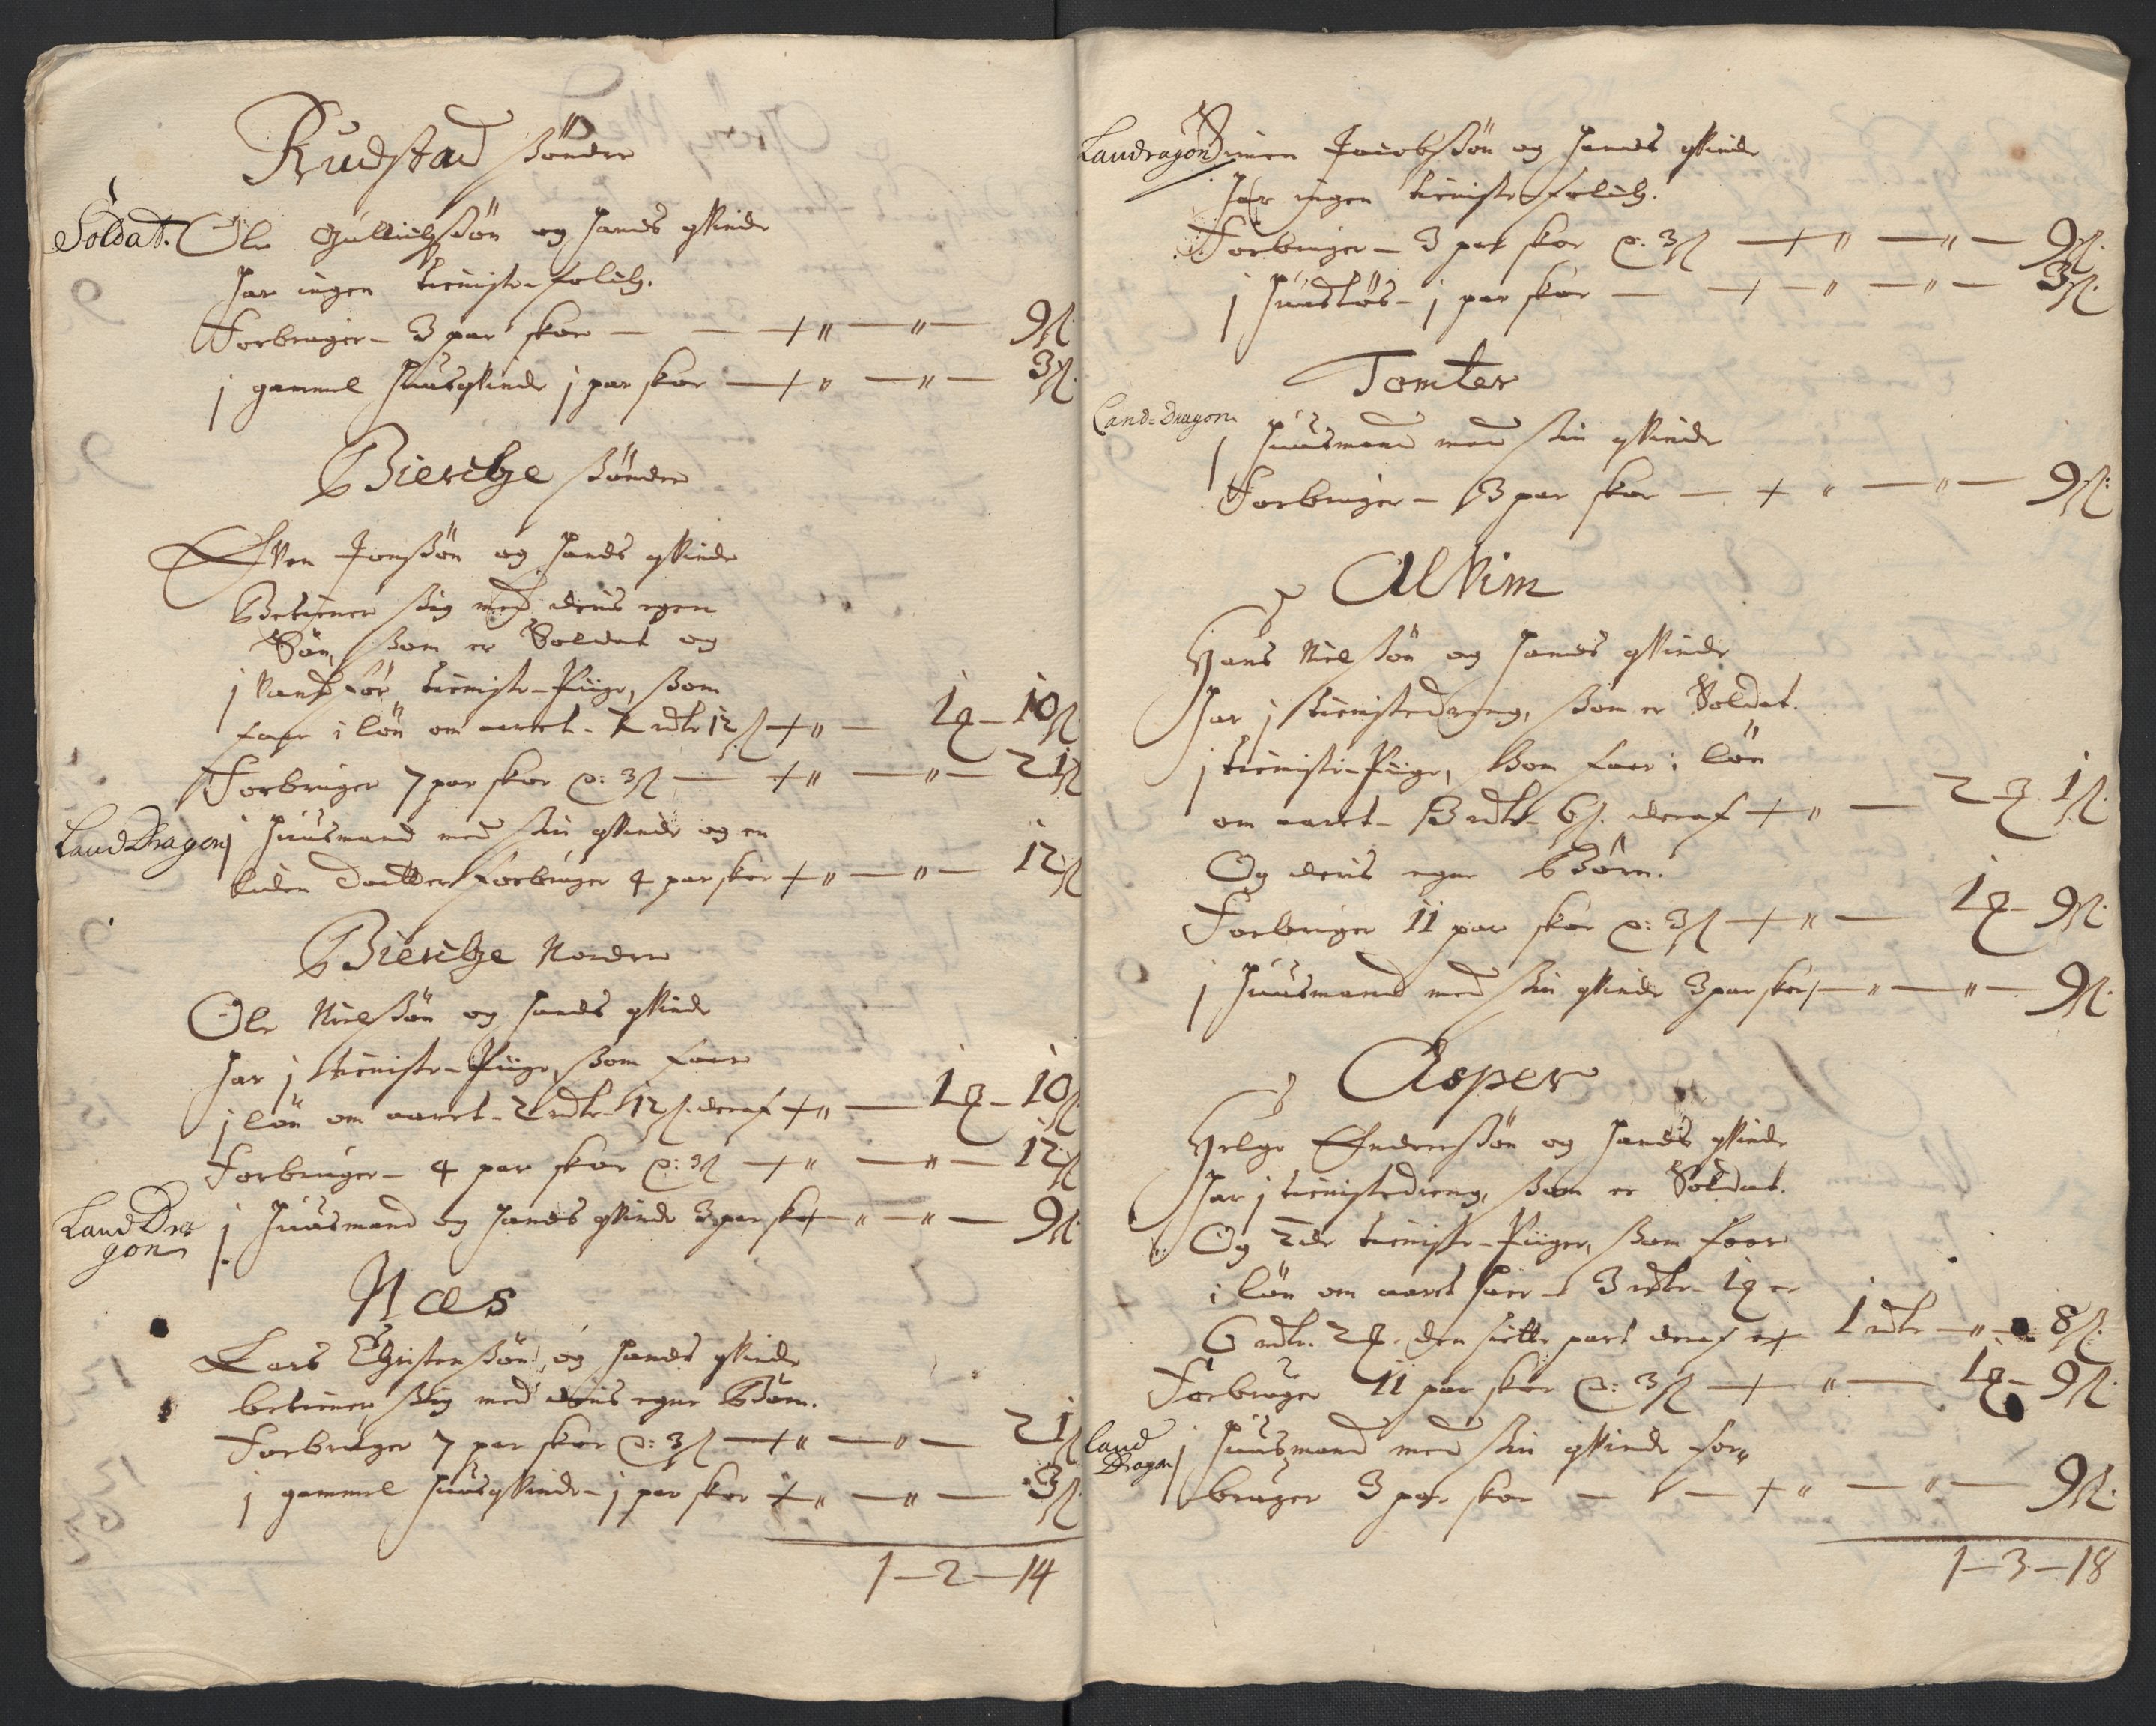 Rudstad Sönder
Soldat. Ole Gulluchsön og hands qvinde
har ingen tieniste-folch.
Forbruger - 3 par skoe — — + " — " — 9 ß
j gammel huusqvinde j par skoe — + " — " — 3 ß.
Bierche Sönder
Even Jonsön og hands qvinde
Betiener sig med deris egen
Sön, som er Soldat og
j tieniste-Piige, som
faar i lön om aaret - 2 rdlr 12 ß + " — 1 q - 10 ß.
Forbruger 7 par skoe p: 3 ß — + " — " — 21 ß
Land Dragon j Huusmand med sin qvinde og en
liden Daatter forbruger 4 par skoe + " — " — 12 ß
Bierche Nordre
Ole Nielsön og hands qvinde
har j tieniste-Piige, som faar
j lön om aaret - 2 rdlr - 12 ß. deraf + " — 1 q - 10 ß.
Forbruger - 4 par skoe p: 3 ß — + " — " — 12 ß
Land Dra
gon j Huusmand og hands qvinde 3 par skoe + — " — " — 9 ß.
Næs
Lars Christensön, og hands qvinde
betiener sig med deris egne Börn.
Forbruger 7 par skoe p: 3 ß — + " — " — 21 ß
j gammel huusqvinde - j par skoe + " — " — 3 ß.
1 — 2 — 14
Landragon Simen Jacobsön og hands qvinde
Har ingen tieniste-folch.
Forbruger - 3 par skoe p. 3 ß — + " — " — 9 ß.
j huusløs - j par skoe — — + — " — " — 3 ß.
Tomter
Land-Dragon j Huusmand med sin qvinde
Forbruger - 3 par skoe — + " — " — 9 ß.
Alkim
Hans Nielsön og hands qvinde
Har j tienistedreng, som er Soldat.
j tieniste-Piige, som faar i lön
om aaret - 3 rdlr - 6 ß. deraf + " — 2 q. 1 ß.
Og deris egne Börn.
Forbruger 11 par skoe p: 3 ß — + " — 1 q - 9 ß.
j Huusmand med sin qvinde 3 par skoe + — " — " — 9 ß.
Asper
Helge Endersön og hands qvinde
Har j tienistedreng, som er Soldat.
Og 2de tieniste-Piiger, som faar
i lön om aaret hver - 3 rdlr - 1 q er
6 rdlr. 2 q. den siette part deraf er + 1 rdlr — " — 8 ß.
Forbruger 11 par skoe p: 3 ß — + " — 1 q - 9 ß.
Land
Dragon j Huusmand med sin qvinde for-
bruger 3 par skoe — — + " — " — 9 ß.
1 — 3 — 18